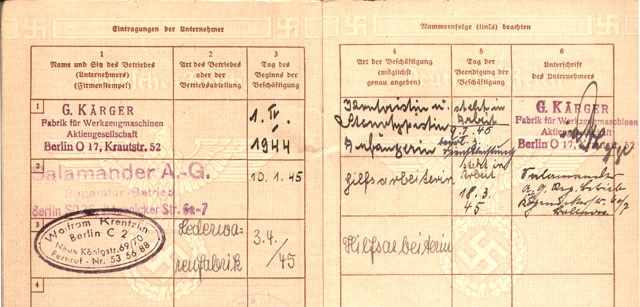 Eintragungen der Unternehmer
Nummernfolge (links) beachten
1
Name und Sitz des Betriebes
(Unternehmers)
(Firmenstempel)
2
Art des Betriebes
oder der
Betriebsabteilung
3
Tag des
Beginns der
Beschäftigung
4
Art der Beschäftigung
(möglichst
genau angeben)
5
Tag der
Beendigung der
Beschäftigung
6
Unterschrift
des Unternehmers
1
G. KÄRGER
Fabrik für Werkzeugmaschinen
Aktiengesellschaft
Berlin O 17, Krautstr. 52
1. IV.
1944
Kontoristin u.
Stenotypistin
Anfängerin
steht in
Arbeit
9.1.45
G. KÄRGER
Fabrik für Werkzeugmaschinen
Aktiengesellschaft
Berlin O 17, Krautstr. 52
2
Salamander A.-G.
Reparatur-Betrieb
Berlin SO 36, Köpenicker Str. 6a-7
10.1.45
Hilfsarbeiterin
steht in
Arbeit
18.3.
45
Salamander
A.G. Rep. Betrieb
3
Wolfram Krentzlin
Berlin C 2
Neue Königstr. 69/70
Fernruf - Nr. 53 56 88
Lederwa-
renfabrik
3.4.
/45
Hilfsarbeiterin
4